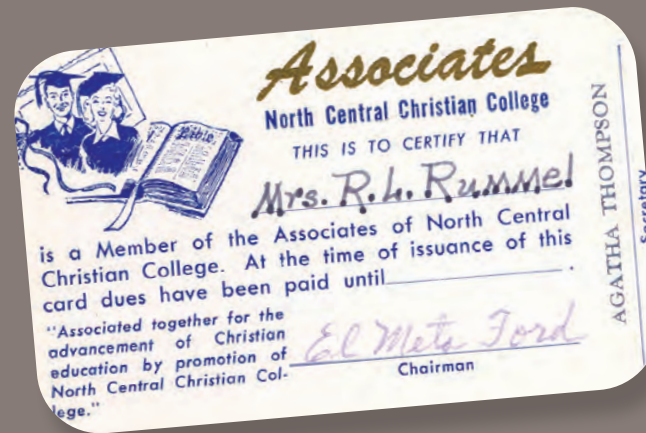 Associates
North Central Christian College
THIS IS TO CERTIFY THAT
Mrs. R. L. Rummel
is a Member of the Associates of North Central
Christian College. At the time of issuance of this
card dues have been paid until .
"Associated together for the
advancement of Christian
education by promotion of
North Central Christian Col-
lege."
El Meta Ford
Chairman
AGATHA THOMPSON
Secretary
Bible